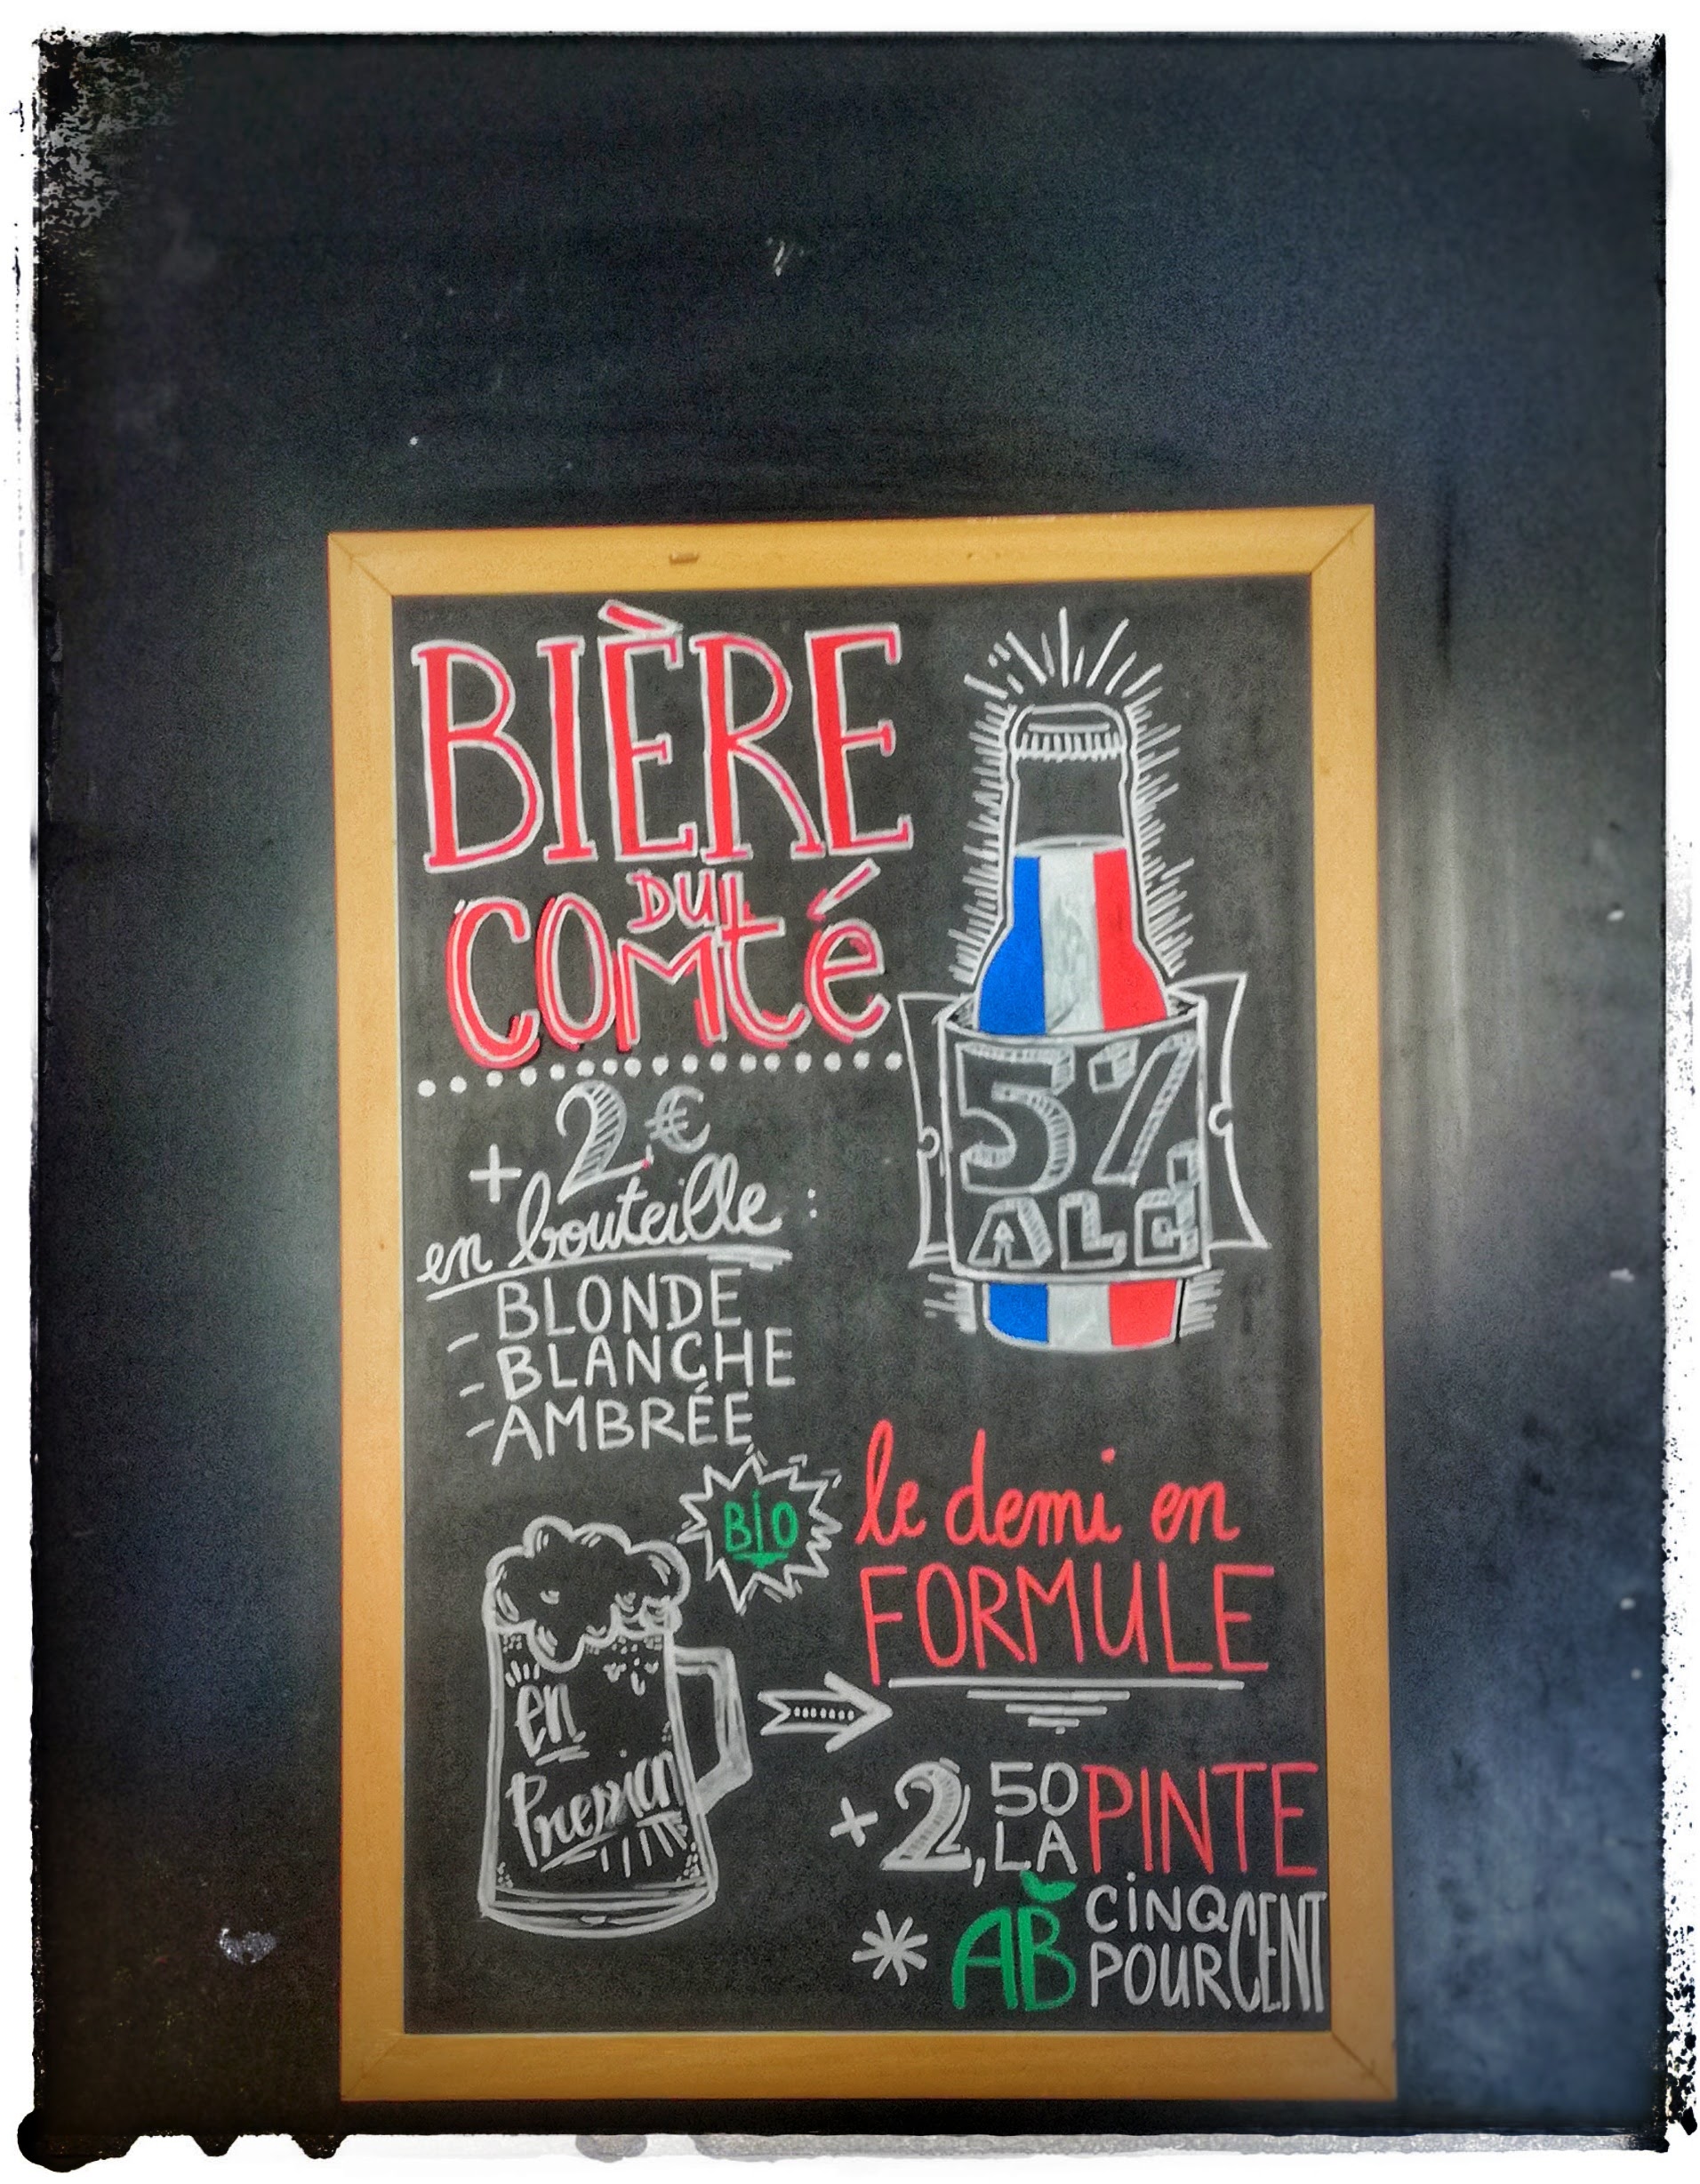 BIÈRE
DU
COMté
+ 2€
en bouteille :
- BLONDE
- BLANCHE
- AMBRÉE
5%
ALC
BIO
en
Pression
le demi en
FORMULE
+ 2,50
LA PINTE
* AB CINQ
POUR CENT